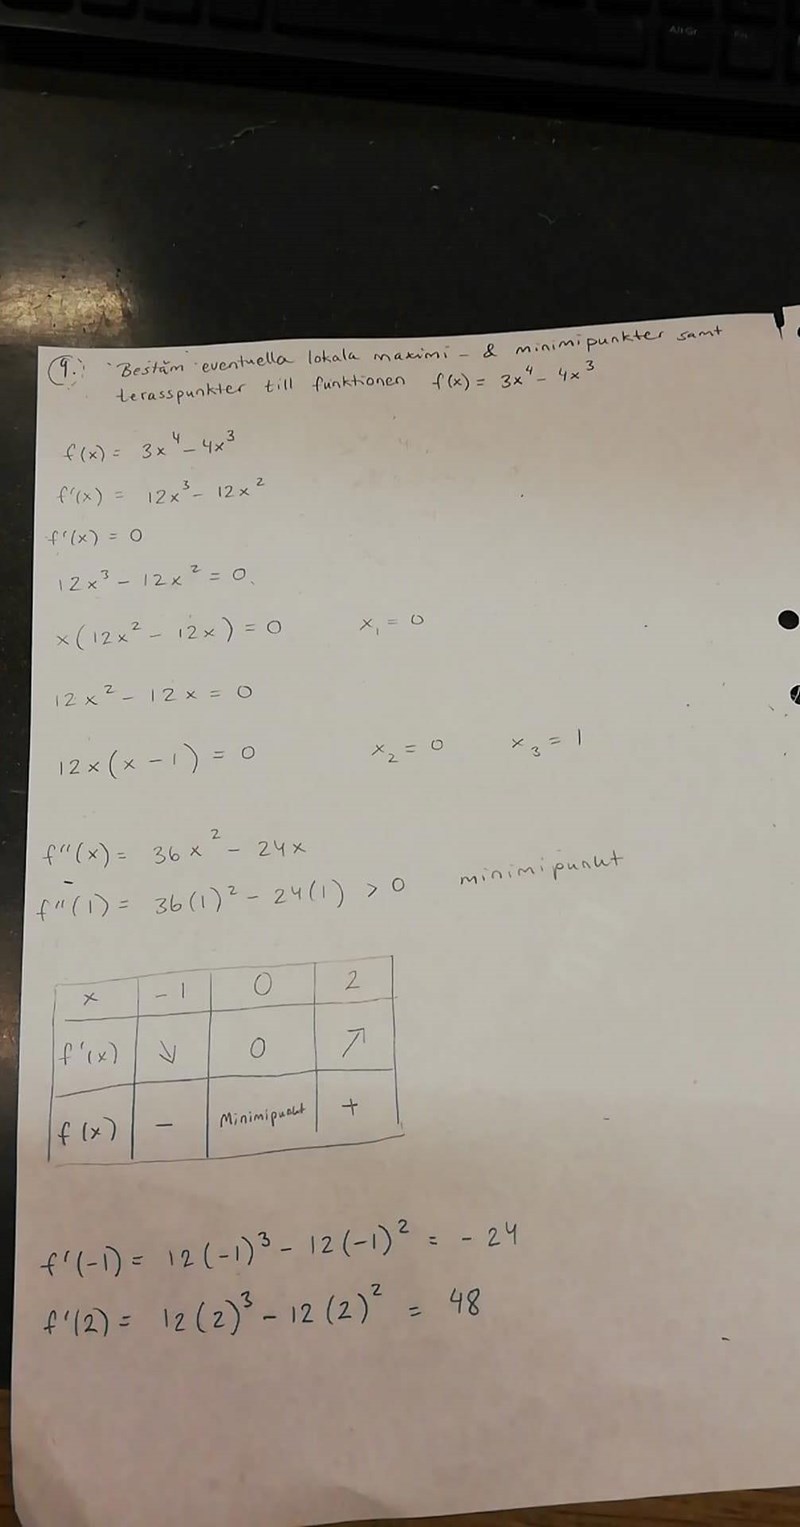 Alt Gr
9. Bestäm eventuella lokala maximi- & minimipunkter samt
terasspunkter till funktionen f(x) = 3x⁴ - 4x³
f(x) = 3x⁴ - 4x³
f'(x) = 12x³ - 12x²
f'(x) = 0
12x³ - 12x² = 0
x(12x² - 12x) = 0 x₁ = 0
12x² - 12x = 0
12x(x - 1) = 0 x₂ = 0 x₃ = 1
f''(x) = 36x² - 24x
f''(1) = 36(1)² - 24(1) > 0 minimipunkt
x -1 0 2
f'(x) ↘ 0 ↗
f(x) - Minimipunkt +
f'(-1) = 12(-1)³ - 12(-1)² = -24
f'(2) = 12(2)³ - 12(2)² = 48